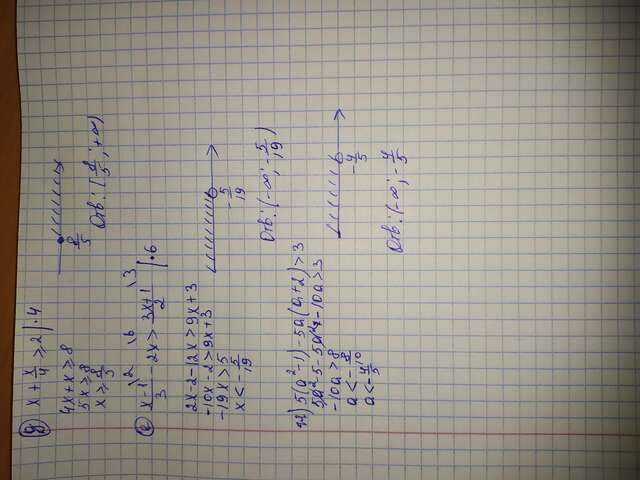 д) x + x/4 ≥ 2 | · 4
4x + x ≥ 8
5x ≥ 8
x ≥ 8/5
8/5
Отв.: [8/5; +∞)
е) x-1/3 \2 - 2x \6 > 3x+1/2 \3 | · 6
2x - 2 - 12x > 9x + 3
-10x - 2 > 9x + 3
-19x > 5
x < -5/19
-5/19
Отв.: (-∞; -5/19)
5(a²-1) - 5a(a+2) > 3
5a² - 5 - 5a² - 10a > 3
-10a > 8
a < -8/10
a < -4/5
-4/5
Отв.: (-∞; -4/5